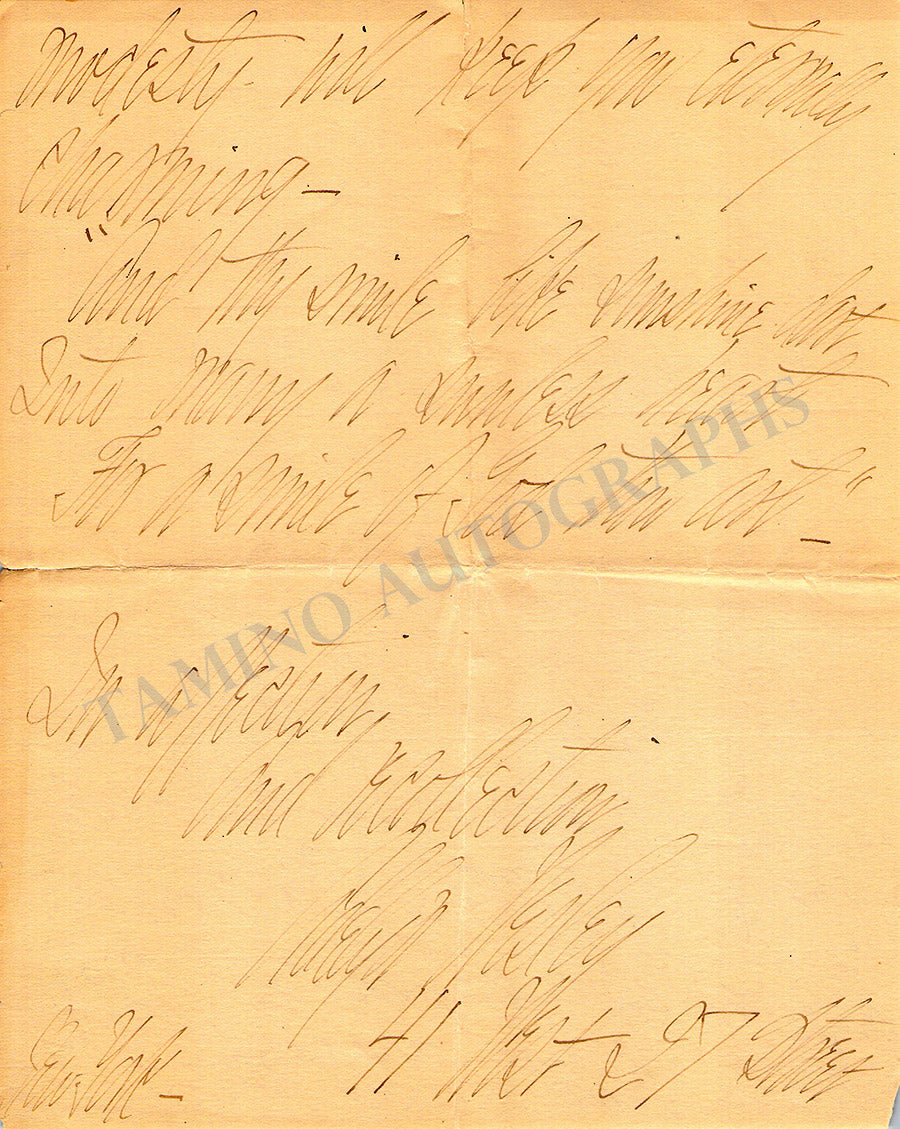 modesty - will keep you eternally
charming -
"And thy smile like sunshine dart
Into many a sunless heart
For a smile of God thou art." -
TAMINO AUTOGRAPHS
In affection,
and recollection
Wesley
41 West 27 Street
New York -